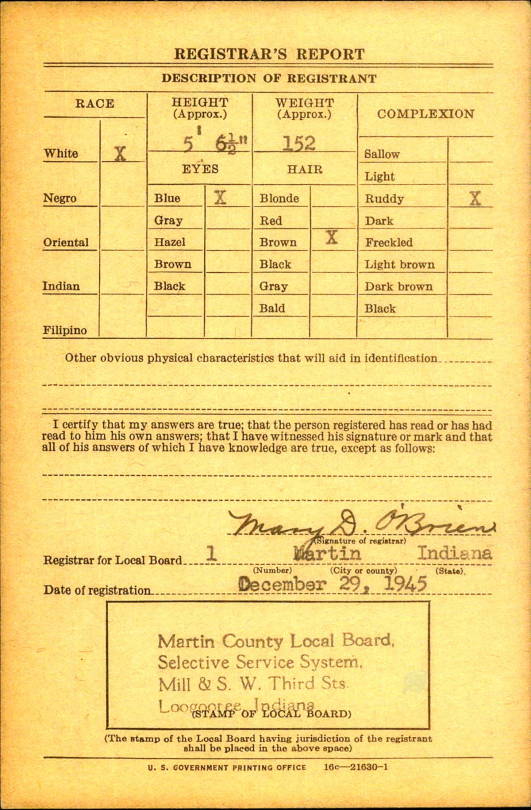 REGISTRAR'S REPORT
DESCRIPTION OF REGISTRANT
RACE
HEIGHT
(Approx.)
WEIGHT
(Approx.)
COMPLEXION
5' 6½"
152
White X
EYES
HAIR
Sallow
Light
Negro
Blue X
Blonde
Ruddy X
Gray
Red
Dark
Oriental
Hazel
Brown X
Freckled
Brown
Black
Light brown
Indian
Black
Gray
Dark brown
Bald
Black
Filipino
Other obvious physical characteristics that will aid in identification
I certify that my answers are true; that the person registered has read or has had
read to him his own answers; that I have witnessed his signature or mark and that
all of his answers of which I have knowledge are true, except as follows:
Mary D. O'Brien
(Signature of registrar)
Registrar for Local Board 1 Martin Indiana
(Number) (City or county) (State)
Date of registration December 29, 1945
Martin County Local Board,
Selective Service System,
Mill & S. W. Third Sts.
Loogootee, Indiana
(STAMP OF LOCAL BOARD)
(The stamp of the Local Board having jurisdiction of the registrant
shall be placed in the above space)
U. S. GOVERNMENT PRINTING OFFICE 16c—21630-1